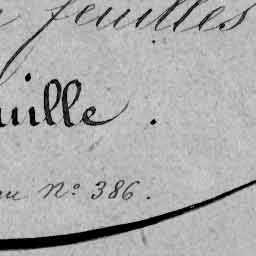 feuilles
uille .
au Nº 386.